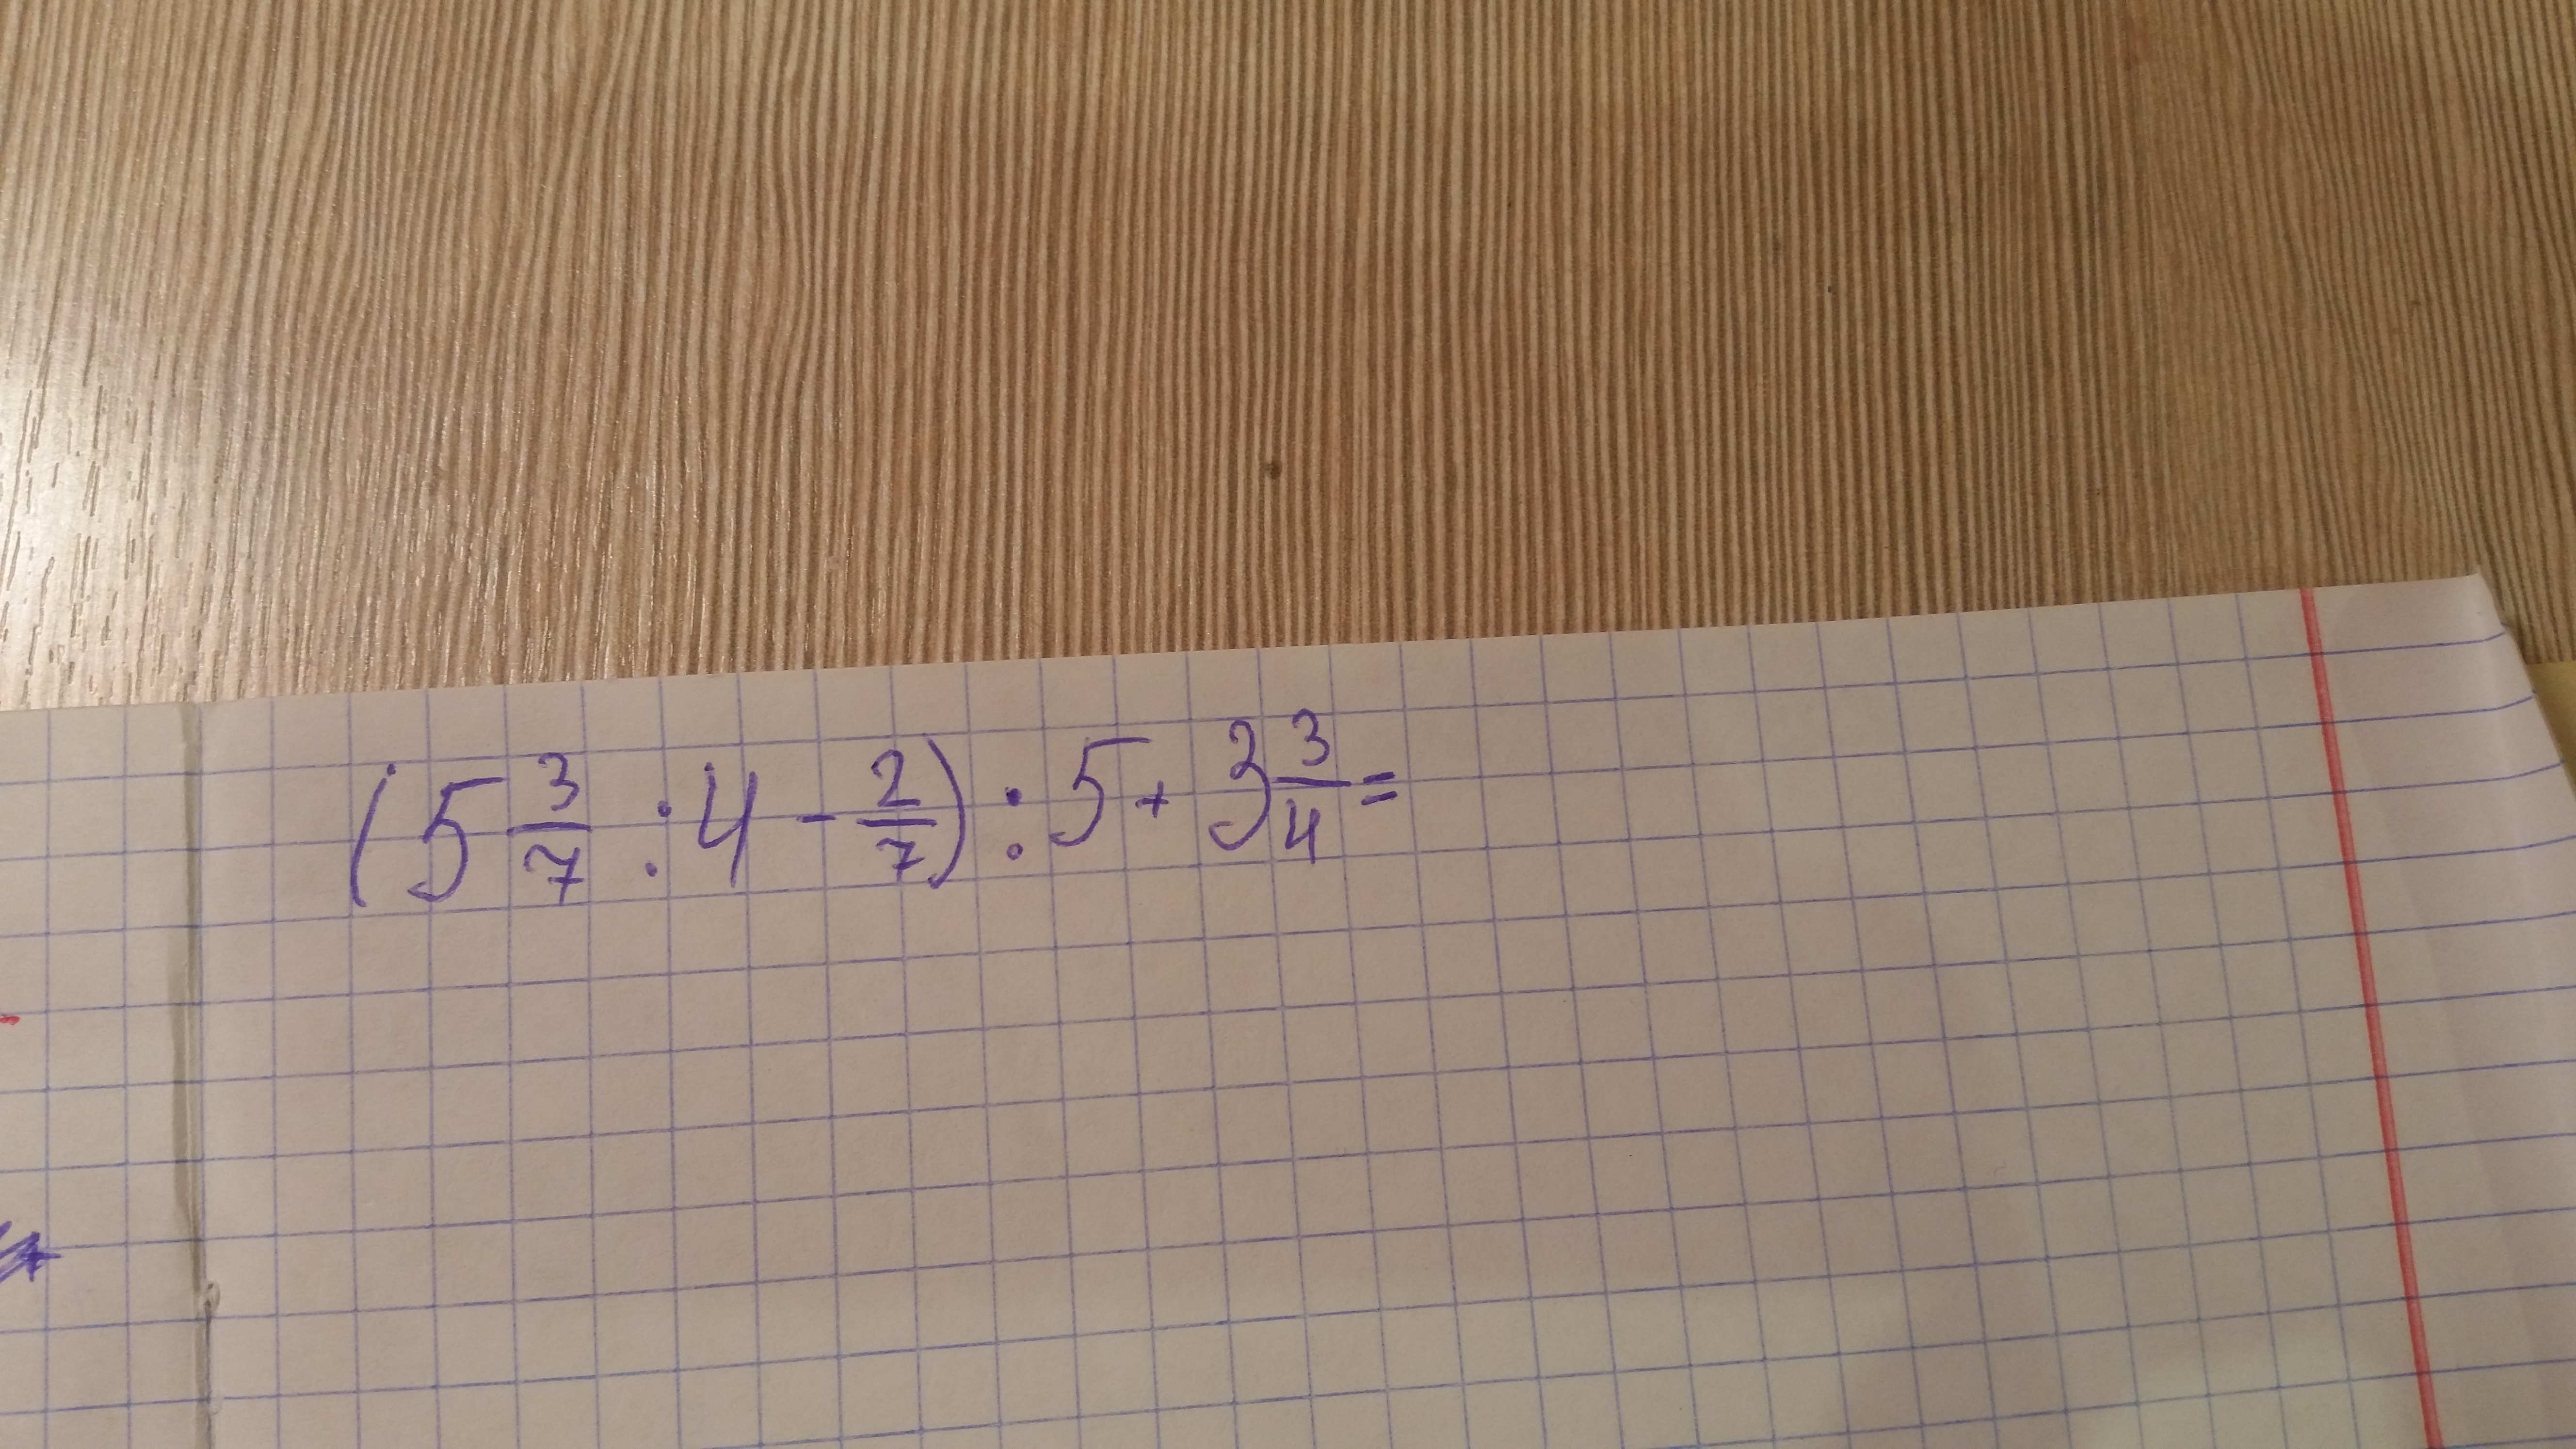 (5 3/7 : 4 - 2/7) : 5 + 3 3/4 =